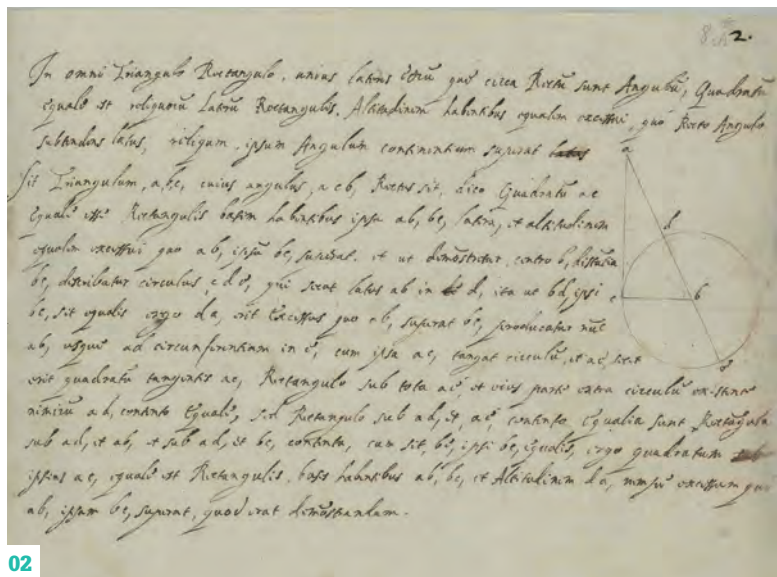 2.
In omni Triangulo Rectangulo, unius lateris eorũ quę circa Rectũ sunt Angulũ, Quadratũ
equale est reliquorũ Laterũ Rectangulis, Altitudinem habentibus equalem excessui, quo Recto Angulo
subtendens latus, reliqum, ipsum Angulum continentium superat latus
Sit Triangulum, abc, cuius angulus, acb, Rectus sit, dico Quadratũ ac
Equale esse Rectangulis basim habentibus ipsa ab, bc, latera, et altitudinem
equalem excessui quo ab, ipsũ bc, superat. et ut demõstretur, centro b, distantia
bc, describatur circulus, cde, qui secet latus ab in d, ita ut bd, ipsi
bc, sit equalis ergo da, erit Excessus quo ab, superat bc, producatur nũc
ab, usque ad circumferentiam in e, cum ipsa ac, tangat circulũ, et ae, secet
erit quadratũ tangentis ac, Rectangulo sub tota ae, et eius parte extra circulũ existente
nimirũ ad, contento Equale, sed Rectangulo sub ad, et, ae, contento Equalia sunt Rectãgula
sub ad, et ab, et sub ad, et be, contenta, cum sit, be, ipsi bc, equalis, ergo quadratum sub
ipsius ac, equale est Rectangulis, bases habentibus ab, bc, et Altitudinem da, nempe excessum quo
ab, ipsam bc, superat, quod erat demõstrandum.
a
d
c
b
e
02